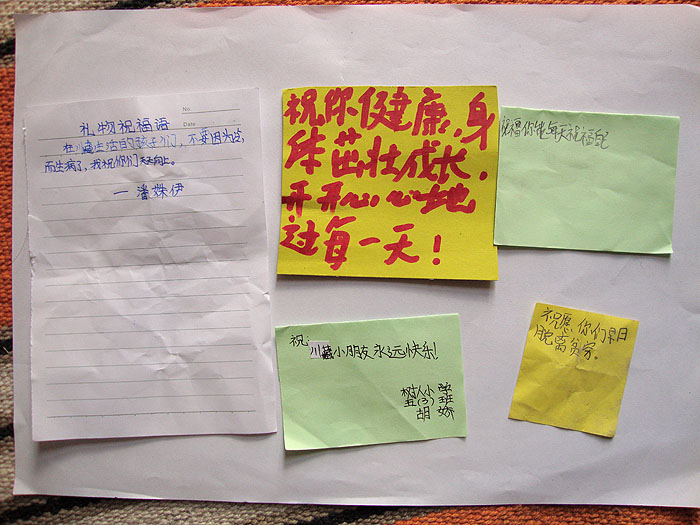 No.
Date
礼物祝福语
在川藏生活的孩子们,不要因为冷
而生病了,我祝你们天天向上。
— 潘姝伊
祝你健康,身
体茁壮成长,
开开心心地
过每一天!
祝福你能每天被福
祝:
川藏小朋友永远快乐!
树人小学
五(3)班
胡娇
祝愿你们早日
脱离贫穷.